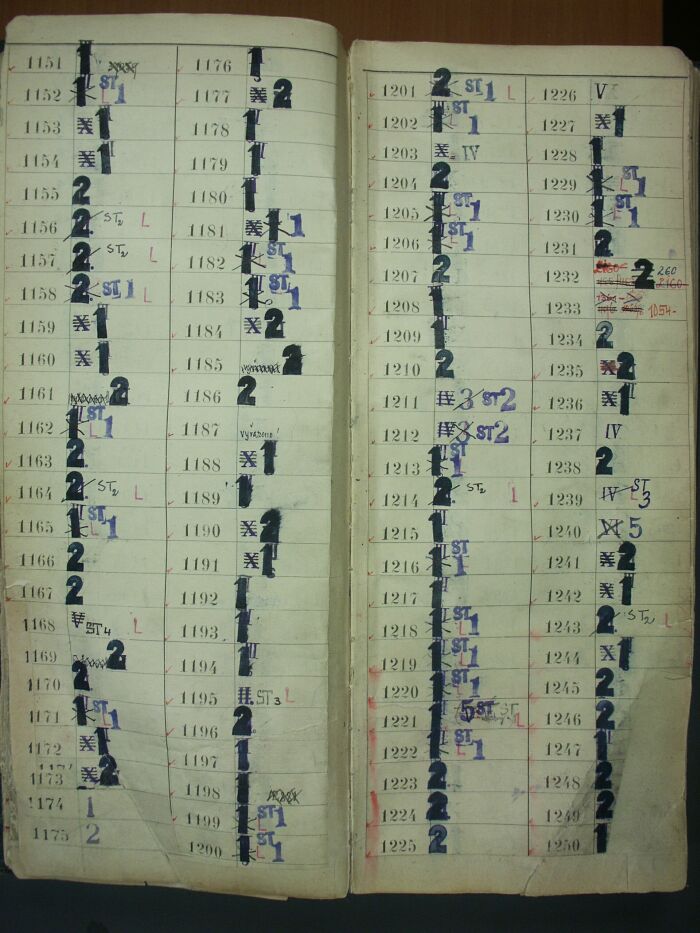 1151 1
1152 1 ST 1 L
1153 X 1
1154 X 1
1155 2
1156 2 ST2 L
1157 2 ST2 L
1158 2 ST 1 L
1159 X 1
1160 X 1
1161 2
1162 1 ST L 1
1163 2
1164 2 ST2 L
1165 1 ST L 1
1166 2
1167 2
1168 V ST4 L
1169 2
1170 2
1171 1 ST L 1
1172 X 1
1173 X 2
1174 1
1175 2
1176 1
1177 X 2
1178 1
1179 1
1180 1
1181 X 1 1
1182 1 ST L 1
1183 1 ST L 1
1184 X 2
1185 2
1186 2
1187 vyřazeno!
1188 X 1
1189 1
1190 X 2
1191 X 1
1192 1
1193 1
1194 1
1195 II. ST3 L
1196 2
1197 1
1198 1
1199 1 ST L 1
1200 1 ST L 1
1201 2 ST 1 L
1202 1 ST L 1
1203 X. IV
1204 2
1205 1 ST L 1
1206 1 ST L 1
1207 2
1208 1
1209 1
1210 2
1211 IV 3 ST 2
1212 IV 3 ST 2
1213 1 ST L 1
1214 2 ST2 L
1215 1
1216 1 ST L 1
1217 1
1218 1 ST L 1
1219 1 ST L 1
1220 1 ST L 1
1221 1 5 ST ST L
1222 1 ST L 1
1223 2
1224 2
1225 2
1226 V
1227 X 1
1228 1
1229 1 ST L 1
1230 1 ST L 1
1231 2
1232 2160 2 260 2160
1233 1054-
1234 2
1235 X 2
1236 X 1
1237 IV
1238 2
1239 IV ST L 3
1240 XI 5
1241 X 2
1242 X 1
1243 2 ST2 L
1244 X 1
1245 2
1246 2
1247 1
1248 2
1249 2
1250 1